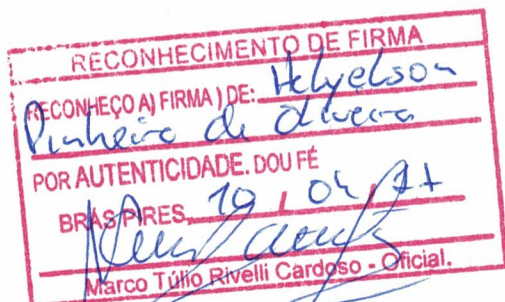 RECONHECIMENTO DE FIRMA
RECONHEÇO A) FIRMA ) DE: Helyelson
Pinheiro de Oliveira
POR AUTENTICIDADE. DOU FÉ
BRÁS PIRES, 04
Marco Túlio Rivelli Cardoso - Oficial.